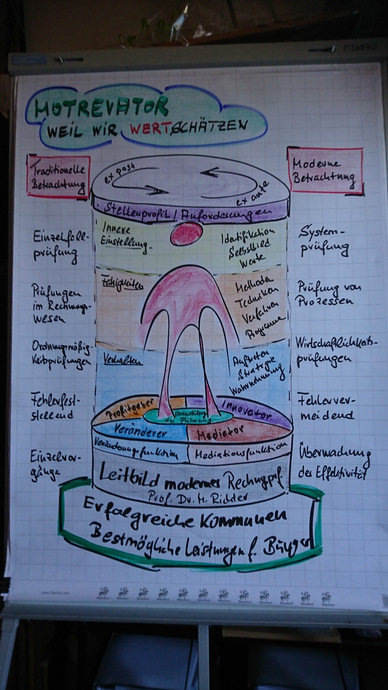 MOTREVATOR
WEIL WIR WERTSCHÄTZEN
Traditionelle
Betrachtung
Moderne
Betrachtung
ex post
ex ante
Stellenprofil / Anforderungen
Einzelfall-
prüfung
Innere
Einstellung
Identifikation
Selbstbild
Werte
System-
prüfung
Prüfungen
im Rechnungs-
wesen
Fähigkeiten
Methoden
Techniken
Verfahren
Programme
Prüfung von
Prozessen
Ordnungsmäßig-
keitsprüfungen
Verhalten
Auftreten
Strategie
Wahrnehmung
Wirtschaftlichkeits-
prüfungen
Fehlerfest-
stellend
Profitgeber
Innovator
Fehlerver-
meidend
Veränderer
Mediator
Einzelvor-
gänge
Veränderungsfunktion
Mediationsfunktion
Überwachung
der Effektivität
Leitbild moderner Rechngsprf
Prof. Dr. H. Richter
Erfolgreiche Kommunen
Bestmögliche Leistungen f. Bürger